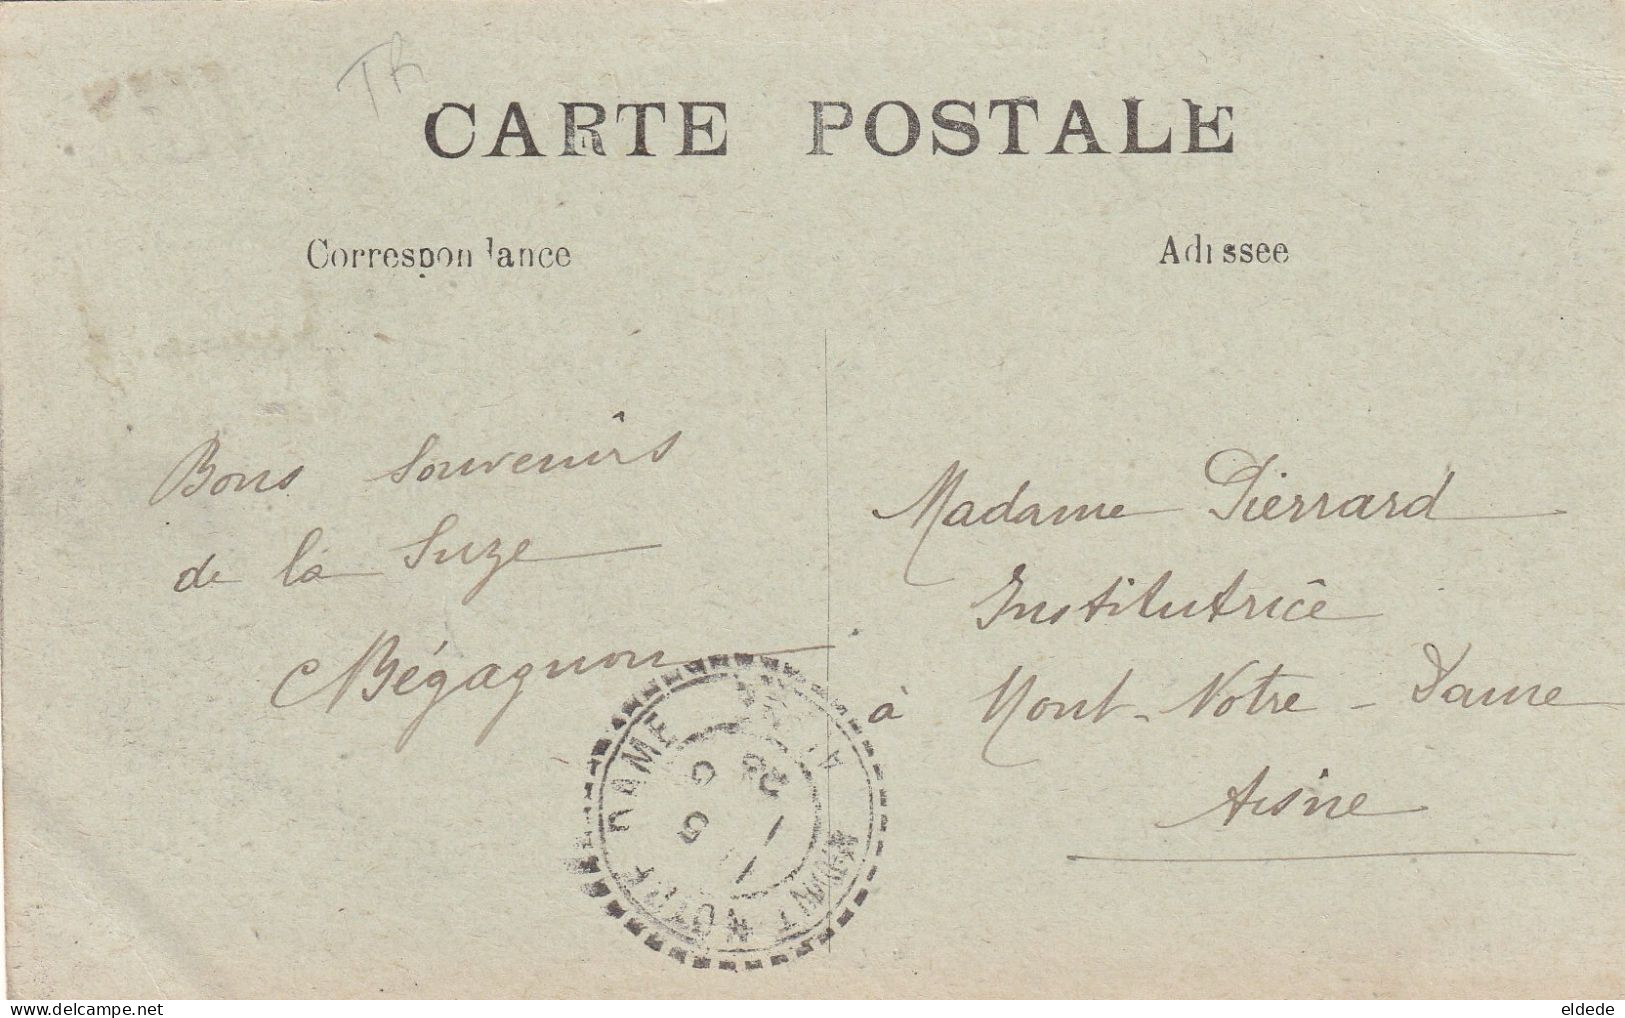 TR
CARTE POSTALE
Correspondance
Bons Souvenirs
de la Suze
Bégagnon
Adressee
Madame Pierrard
Institutrice
à Mont-Notre-Dame
Aisne
MONT NOTRE DAME
eldede